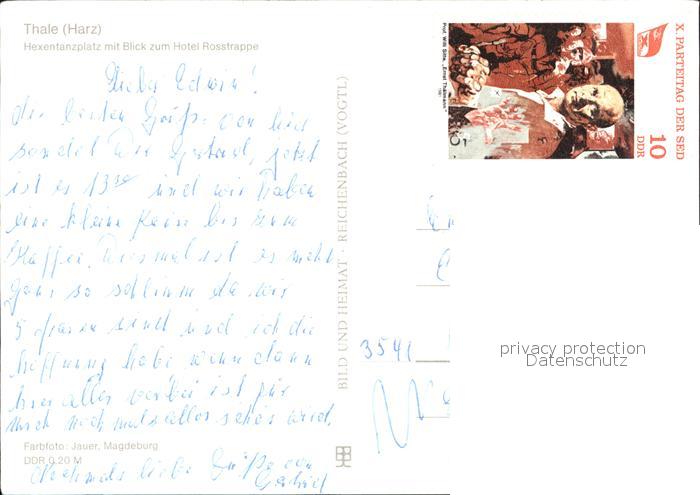 Thale (Harz)
Hexentanzplatz mit Blick zum Hotel Rosstrappe
Lieber Edwin!
die besten Grüße von hier
sendet Dir Gerhard, jetzt
ist es 13 30 und wir haben
eine kleine Pause bis zum
Kaffee. Diesmal ist es nicht
ganz so schlimm da wir
5 sind und ich die
Hoffnung habe wenn dann
hier alles vorbei ist für
mich noch mals alles schön wird.
Nochmals liebe Grüße von
Gerhard
Farbfoto: Jauer, Magdeburg
DDR 0,20 M
BILD UND HEIMAT · REICHENBACH (VOGTL)
X. PARTEITAG DER SED
10
DDR
Prof. Willi Sitte, „Ernst Thälmann"
1981
3541
privacy protection
Datenschutz